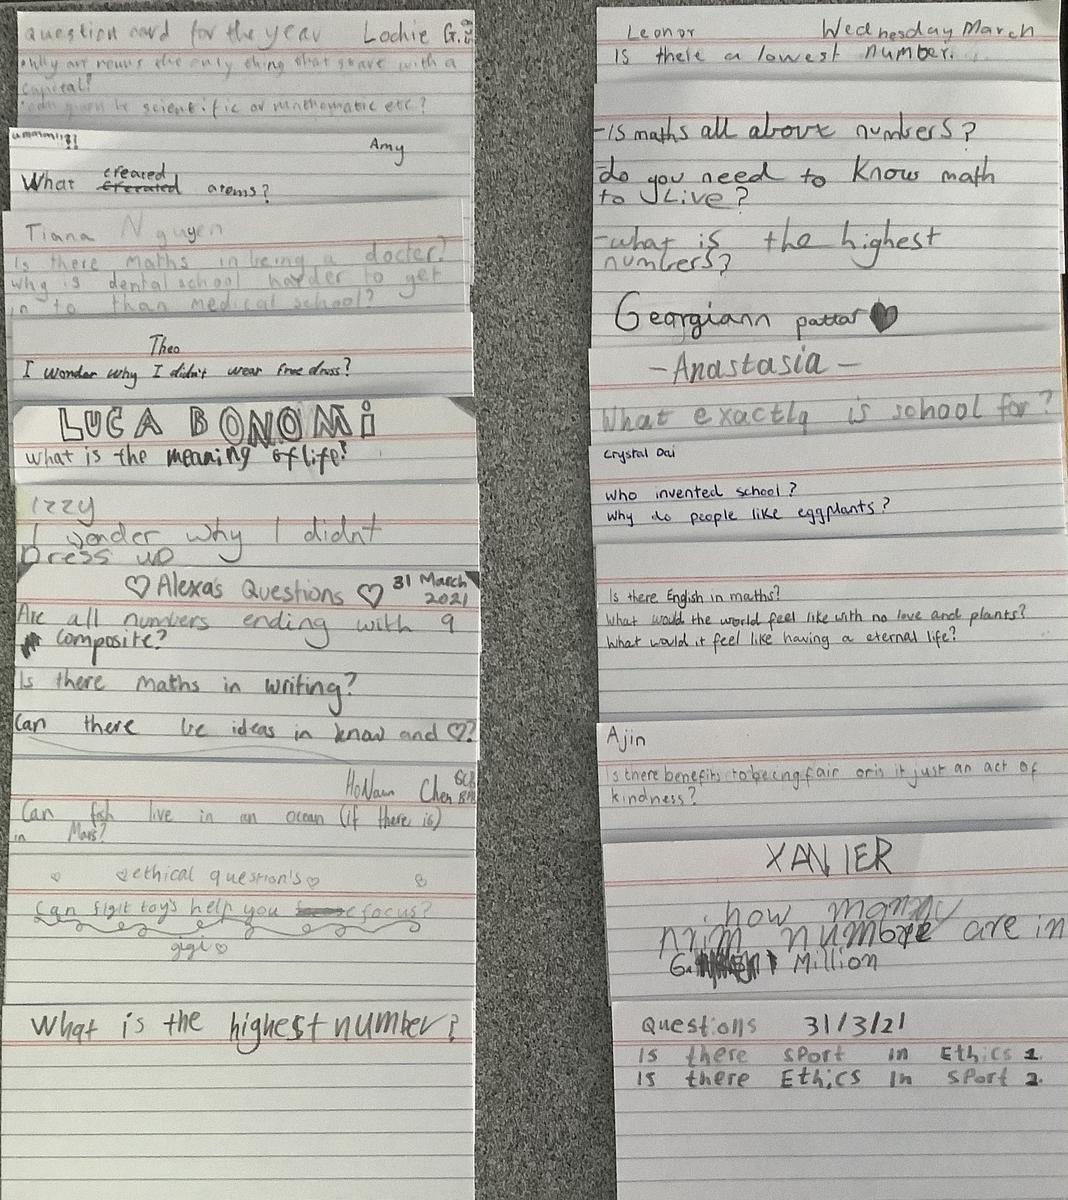 question card for the year Lochie G.
why are nouns the only thing that start with a
capital?
can be scientific or mathematic etc?
ummm!!?!
Amy
created
What atoms?
Tiana Nguyen
Is there maths in being a docter?
why is dental school harder to get
in to than medical school?
Theo
I wonder why I didn't wear free dress?
LUCA BONOMi
What is the meaning of life?
Izzy
I wonder why I didnt
Dress up
♡ Alexa's Questions ♡ 31 March
2021
Are all numbers ending with 9
composite?
Is there maths in writing?
Can there be ideas in know and ♡?
HoNam Chen
Can fish live in an ocean (if there is)
in Mars?
♡ethical question's♡
Can figit toy's help you focus?
gigi♡
What is the highest number?
Leonor Wednesday March
Is there a lowest number.
-Is maths all above numbers?
do you need to know math
to Live?
-what is the highest
numbers?
Georgiann pattar ♥
-Anastasia-
What exactly is school for?
Crystal Dai
who invented school?
Why do people like eggplants?
Is there English in maths?
What would the world feel like with no love and plants?
What would it feel like having a eternal life?
Ajin
Is there benefits to being fair or is it just an act of
kindness?
XAVIER
how many
prim numbre are in
Million
Questions 31/3/21
is there sport in Ethics 1.
is there Ethics in sport 2.